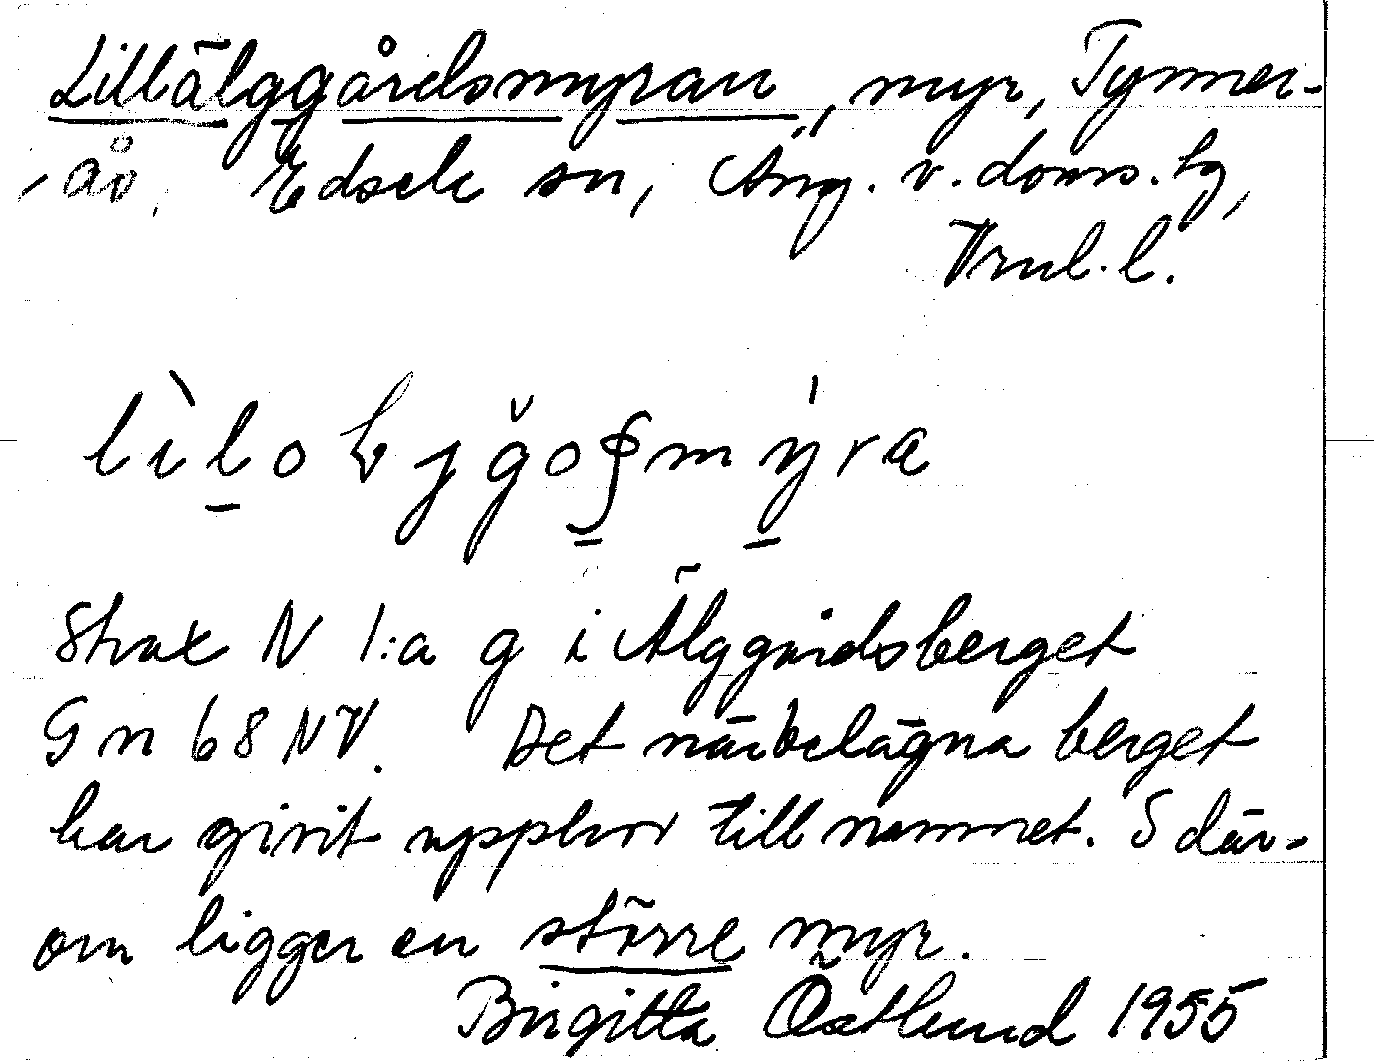 Lillälggårdsmyran, myr, Tynner-
ås, Edsele sn, Ång. v. doms. tg,
Vnl. l.
Strax N l:a g i Älggårdsberget
Gn 68 NV. Det närbelägna berget
har givit upphov till namnet. S där-
om ligger en större myr.
Birgitta Östlund 1955